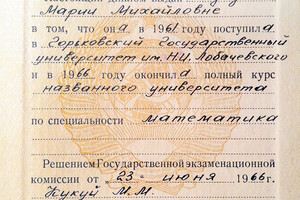 Марии Михайловне
в том, что она в 1961 году поступила
в Горьковский Государственный
университет им. Н.И. Лобачевского
и в 1966 окончила полный курс
названного университета
по специальности математика
Решением Государственной экзаменационной
комиссии от „23" июня 1966 г.
Кукуй М.М.